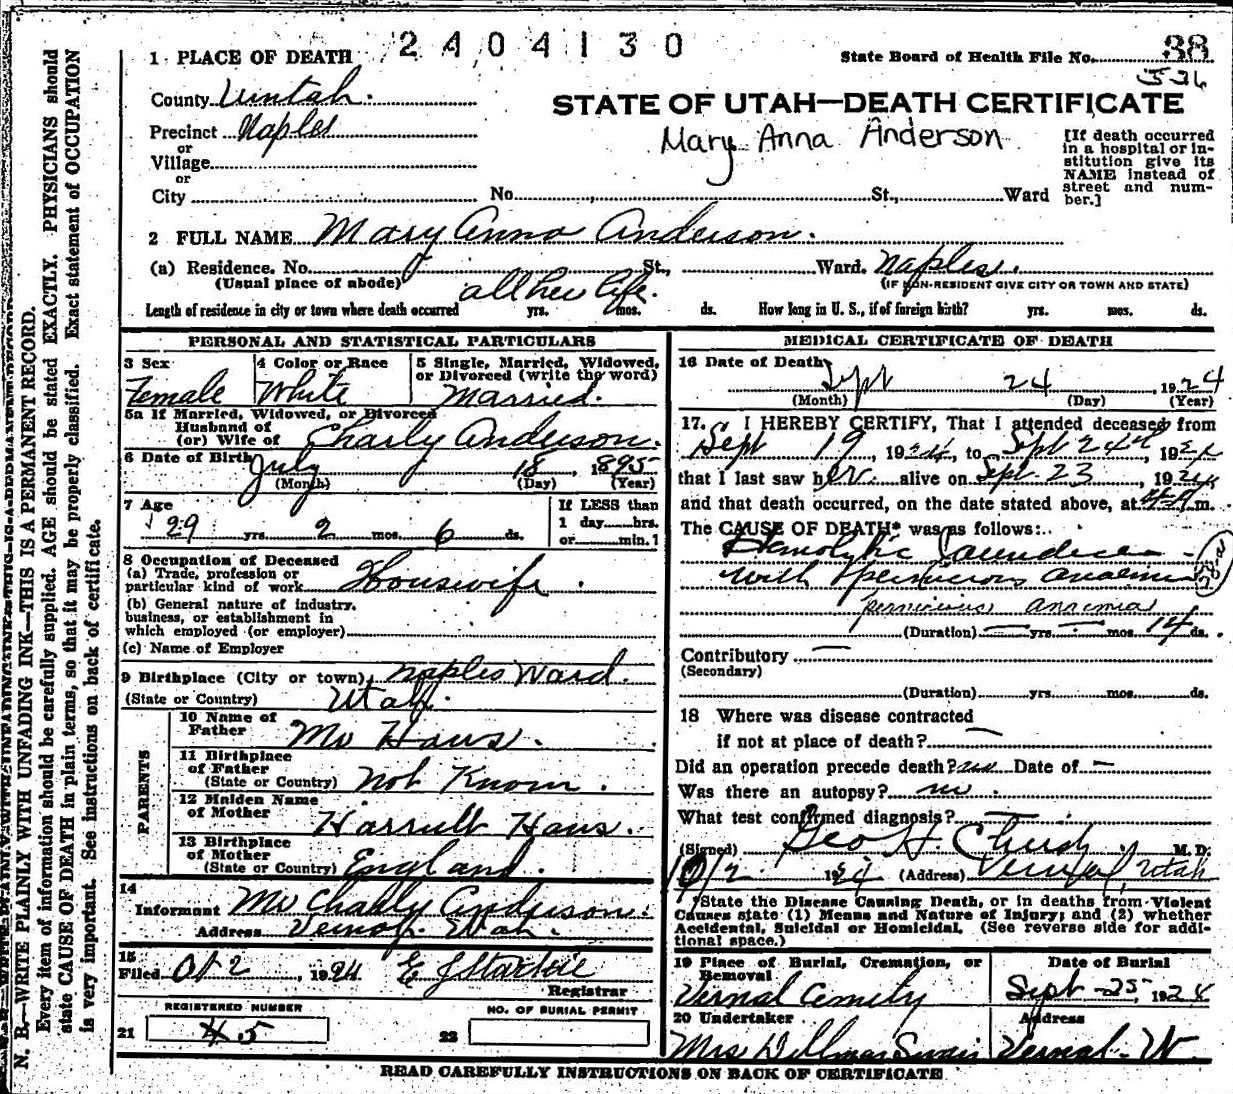 2404130
1 PLACE OF DEATH
State Board of Health File No. 38
County Uintah.
STATE OF UTAH—DEATH CERTIFICATE
Precinct Naples
Mary Anna Anderson
or
Village
or
City
No. St., Ward
[If death occurred
in a hospital or in-
stitution give its
NAME instead of
street and num-
ber.]
2 FULL NAME Mary Anna Anderson.
(a) Residence. No. St., Ward. Naples.
(Usual place of abode)
(IF NON-RESIDENT GIVE CITY OR TOWN AND STATE)
all her life.
Length of residence in city or town where death occurred yrs. mos. ds. How long in U. S., if of foreign birth? yrs. mos. ds.
PERSONAL AND STATISTICAL PARTICULARS
3 Sex
Female
4 Color or Race
White
5 Single, Married, Widowed,
or Divorced (write the word)
Married.
5a If Married, Widowed, or Divorced
Husband of
(or) Wife of Charly Anderson.
6 Date of Birth July 18, 1895
(Month) (Day) (Year)
7 Age
29 yrs. 2 mos. 6 ds.
If LESS than
1 day hrs.
or min.?
8 Occupation of Deceased
(a) Trade, profession or
particular kind of work Housewife.
(b) General nature of industry,
business, or establishment in
which employed (or employer)
(c) Name of Employer
9 Birthplace (City or town) Naples Ward.
(State or Country) Utah.
PARENTS
10 Name of
Father Mr Haws.
11 Birthplace
of Father
(State or Country) Not Known.
12 Maiden Name
of Mother Harriett Haws.
13 Birthplace
of Mother
(State or Country) England.
14
Informant Mr Charly Anderson.
Address Vernal. Utah.
15
Filed Oct 2, 1924
Registrar
REGISTERED NUMBER
21 45
NO. OF BURIAL PERMIT
22
MEDICAL CERTIFICATE OF DEATH
16 Date of Death
Sept 24 1924
(Month) (Day) (Year)
17. I HEREBY CERTIFY, That I attended deceased from
Sept 19, 1924, to Sept 24th, 1924
that I last saw her alive on Sept 23, 1924
and that death occurred, on the date stated above, at m.
The CAUSE OF DEATH* was as follows:
Hemolytic Jaundice
with pernicious anaemia
pernicious annemia
(Duration) — yrs. — mos. 14 ds.
Contributory —
(Secondary)
(Duration) yrs. mos. ds.
18 Where was disease contracted
if not at place of death? —
Did an operation precede death? no Date of —
Was there an autopsy? no.
What test confirmed diagnosis? —
(Signed) Geo H. M. D.
10/2 1924 (Address) Vernal, Utah
*State the Disease Causing Death, or in deaths from Violent
Causes state (1) Means and Nature of Injury; and (2) whether
Accidental, Suicidal or Homicidal. (See reverse side for addi-
tional space.)
19 Place of Burial, Cremation, or
Removal
Vernal Cemetery
Date of Burial
Sept 25, 1924
20 Undertaker
Mrs Dillman Swain
Address
Vernal - Ut.
READ CAREFULLY INSTRUCTIONS ON BACK OF CERTIFICATE
N. B.—WRITE PLAINLY WITH UNFADING INK—THIS IS A PERMANENT RECORD.
Every item of information should be carefully supplied. AGE should be stated EXACTLY. PHYSICIANS should
state CAUSE OF DEATH in plain terms, so that it may be properly classified. Exact statement of OCCUPATION
is very important. See instructions on back of certificate.